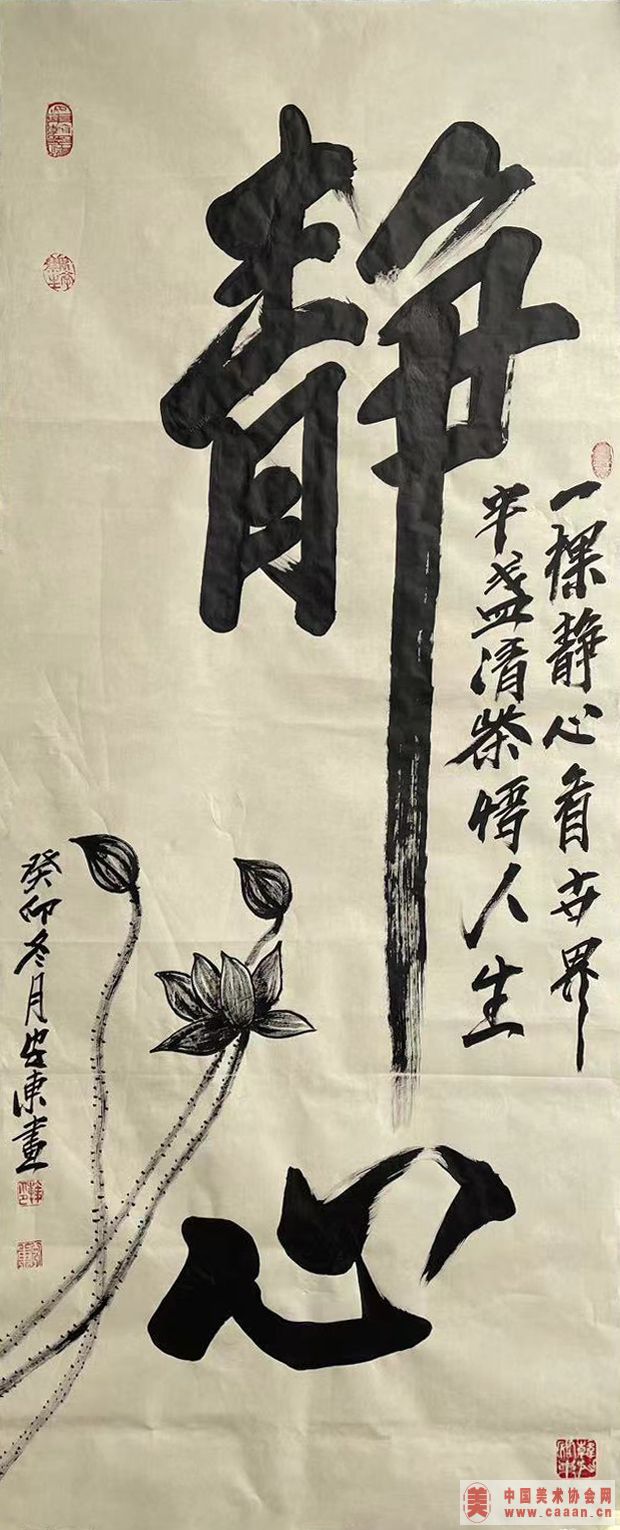 静心
一棵静心看世界
半盏清茶悟人生
癸卯冬月 东画
美 中国美术协会网
www.caaan.cn